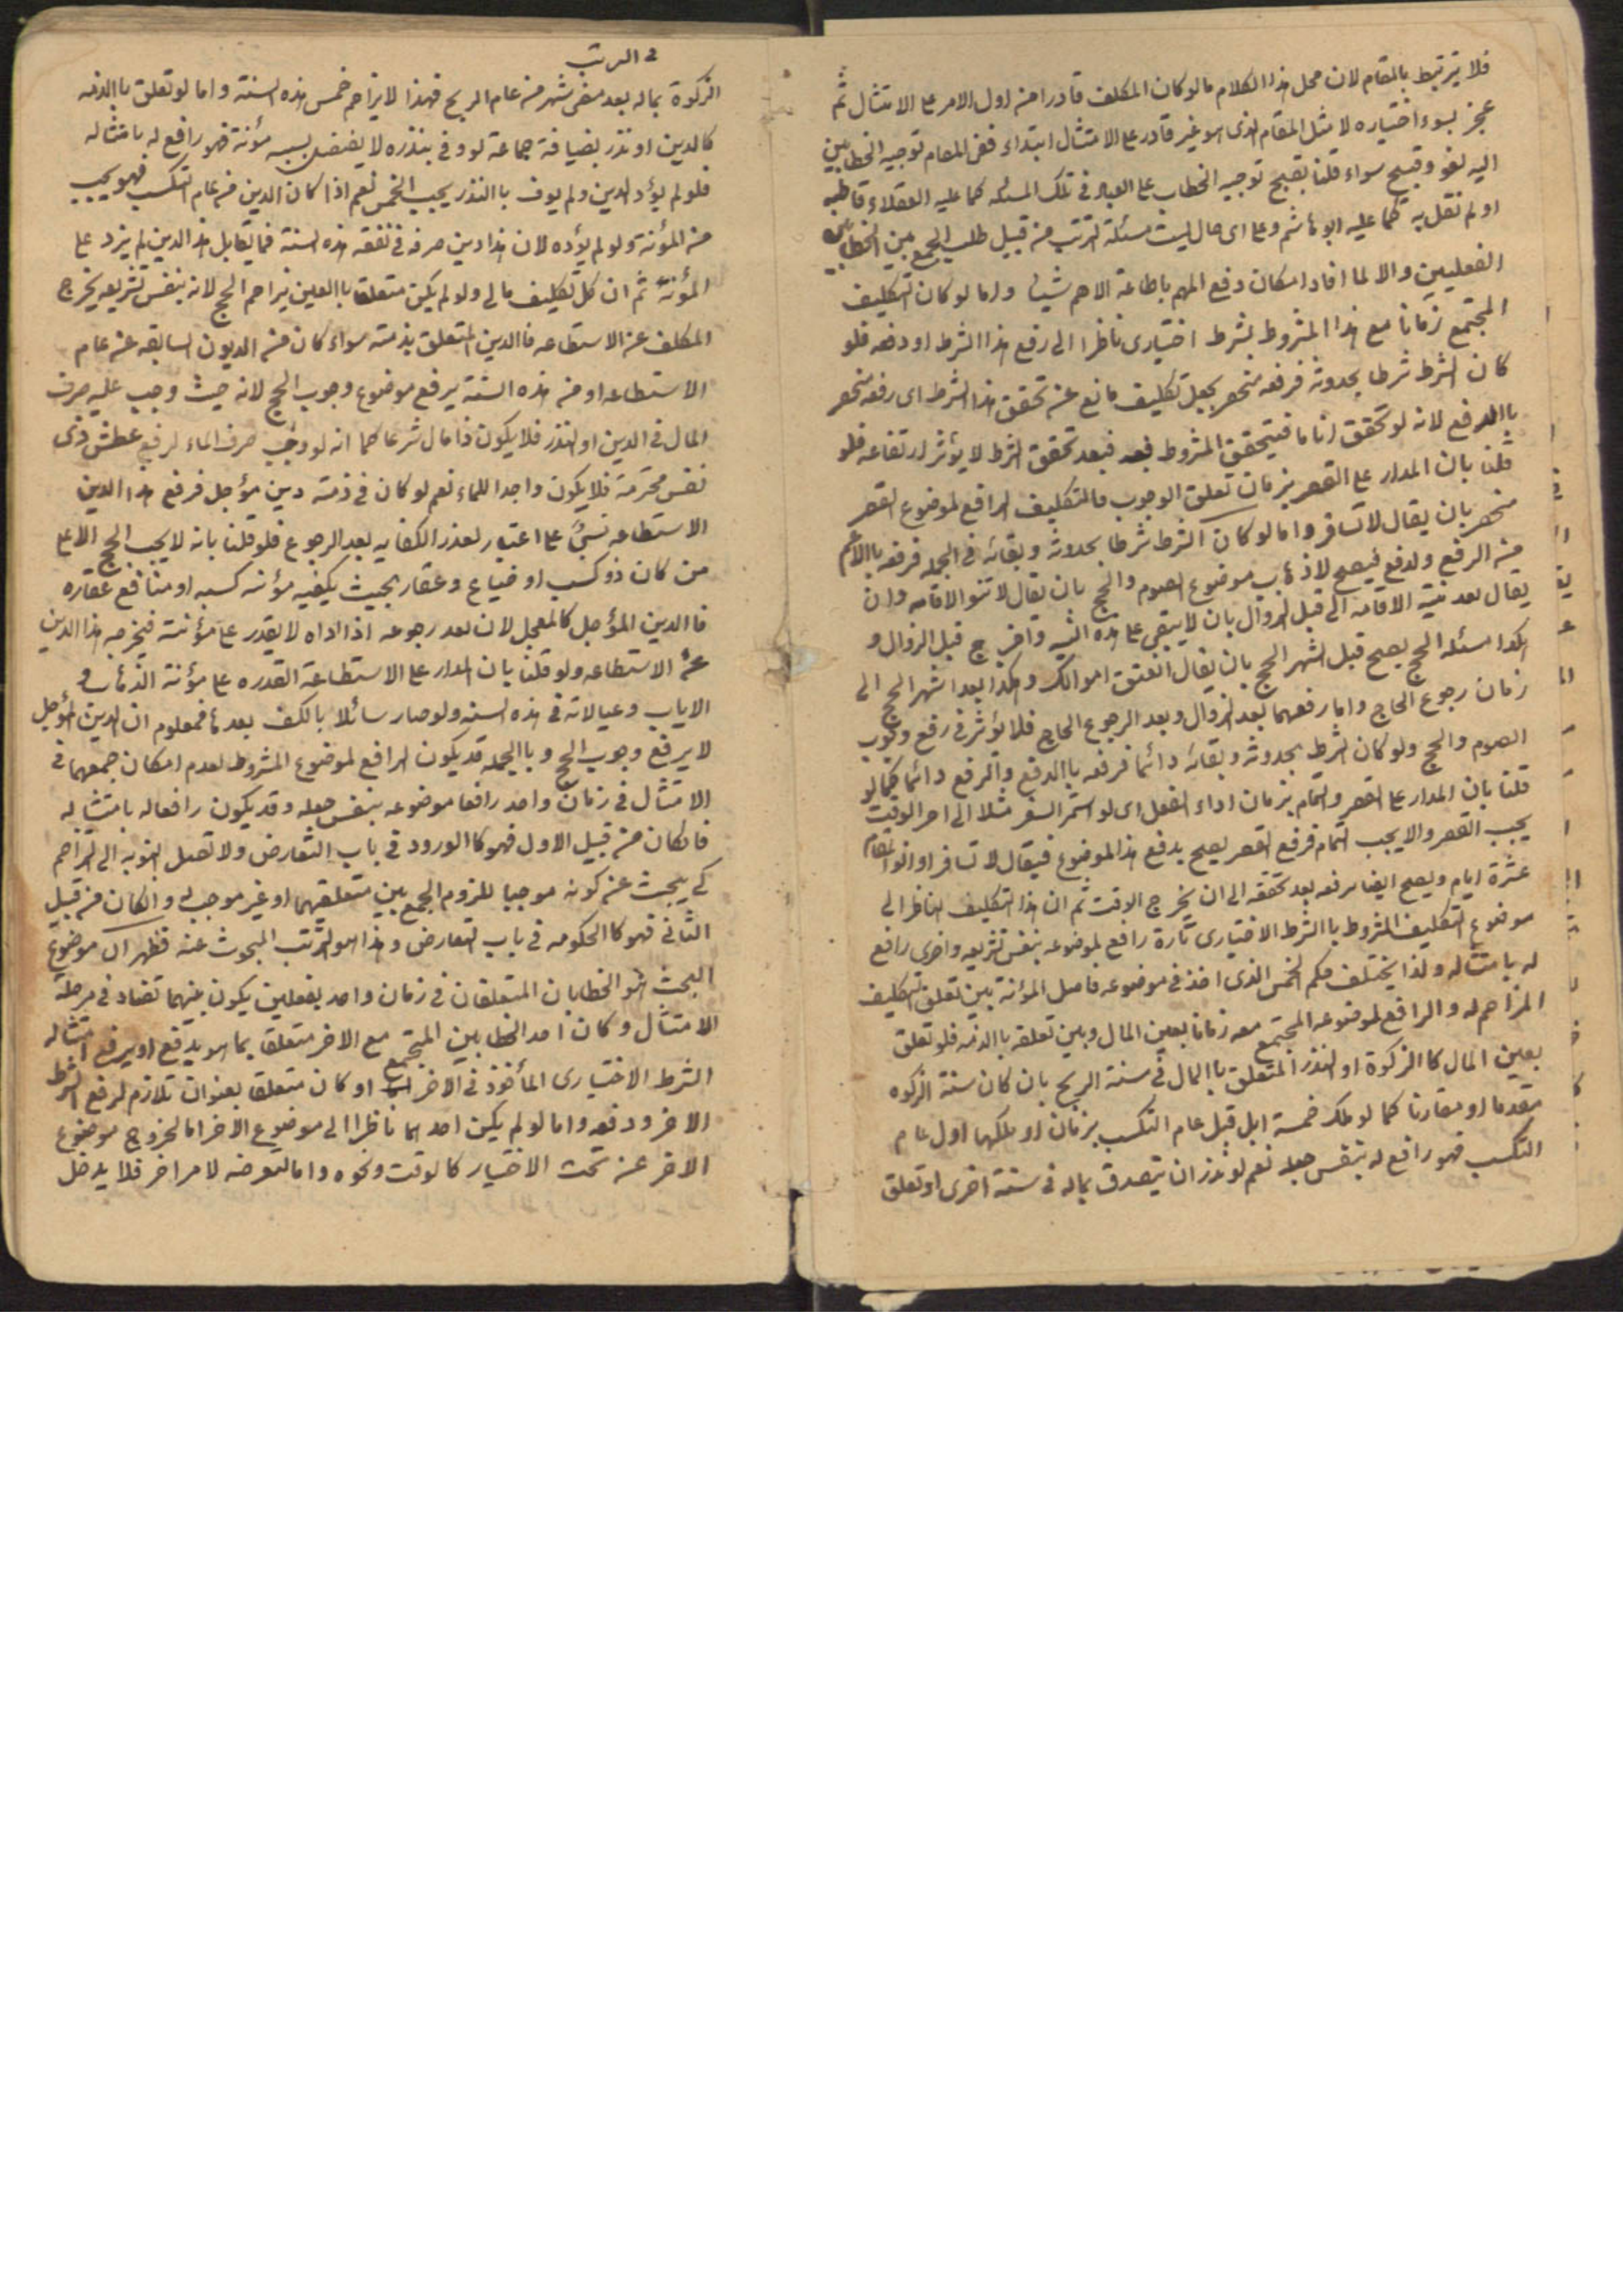 فلا يرتبط بالمقام لان محل هذا الكلام ما لو كان المكلف قادرا من اول الامر على الامتثال ثم
عجز بسوء اختياره لا مثل المقام الذى هو غير قادر على الامتثال ابتداء ففى المقام توجيه الخطابين
اليه لغو وقبيح سواء قلنا بقبح توجيه الخطاب على العباد فى تلك المسئله كما عليه العقلاء قاطبه
او لم نقل به كما عليه ابو هاشم وعلى اى حال ليست مسئلة الترتب من قبيل طلب الجمع بين الخطابين
الفعليين والا لما افاد امكان دفع المهم باطاعة الاهم شيئا واما لو كان التكليف
المجتمع زمانا مع هذا المشروط بشرط اختيارى ناظرا الى رفع هذا الشرط او دفعه فلو
كان الشرط شرطا بحدوثه فرفعه منحصر بجعل تكليف مانع عن تحقق هذا الشرط اى رفعه منحصر
باالدفع لانه لو تحقق انا ما فيتحقق المشروط فبعد تحقق الشرط لا يؤثر ارتفاعه فلو
قلنا بان المدار على القصر بزمان تعلق الوجوب فالتكليف الرافع لموضوع القصر
منحصر بان يقال لا تسافر واما لو كان الشرط شرطا بحدوثه وبقائه فى الجمله فرفعه باالاعم
من الرفع والدفع فيصح لاذهاب موضوع الصوم والحج بان يقال لا تنو الاقامه وان
يقال بعد نية الاقامه الى قبل الزوال بان لا يبقى على هذه النيه واخرج قبل الزوال و
هكذا مسئله الحج يصح قبل اشهر الحج بان يقال انفق اموالك وهكذا بعد اشهر الحج الى
زمان رجوع الحاج واما رفعهما بعد الزوال وبعد الرجوع الحاج فلا يؤثر فى رفع وجوب
الصوم والحج ولو كان الشرط بحدوثه وبقائه دائما فرفعه باالدفع والرفع دائما كما لو
قلنا بان المدار على القصر والتمام بزمان اداء الفعل اى لو استمر السفر مثلا الى اخر الوقت
يجب القصر والا يجب التمام فرفع القصر يصح بدفع هذا الموضوع فيقال لا تسافر او انو المقام
عشرة ايام ويصح ايضا رفعه بعد تحققه الى ان يخرج الوقت ثم ان هذا التكليف الناظر الى
موضوع التكليف المشروط باالشرط الاختيارى تارة رافع لموضوعه بنفس تشريعه واخرى رافع
له بامتثاله ولذا يختلف حكم الخمس الذى اخذ فى موضوعه فاضل المؤنة بين تعلق التكليف
المزاحم له والرافع لموضوعه المجتمع معه زمانا بعين المال وبين تعلقه باالذمه فلو تعلق
بعين المال كاالزكوة او النذر المتعلق باالمال فى سنة الربح بان كان سنة الزكوه
مقدما او مقارنا كما لو ملك خمسة ابل قبل عام التكسب بزمان او ملكها اول عام
التكسب فهو رافع له بنفس جعله نعم لو نذر ان يتصدق بماله فى سنة اخرى او تعلق
الزكوة بماله بعد مضى شهر من عام الربح فهذا لا يزاحم خمس هذه السنة واما لو تعلق باالذمه
كالدين او نذر بضيافة جماعة لو وفى بنذره لا يفضل بسببه مؤنة فهو رافع له بامتثاله
فلو لم يؤد الدين ولم يوف باالنذر يجب الخمس نعم اذا كان الدين من عام التكسب فهو يحسب
من المؤنة ولو لم يؤده لان هذا دين صرفه فى نفقه هذه السنة فما يقابل هذا الدين لم يزد على
المؤنة ثم ان كل تكليف مالى ولو لم يكن متعلقا باالعين يزاحم الحج لانه بنفس تشريعه يخرج
المكلف عن الاستطاعه فاالدين المتعلق بذمته سواء كان من الديون السابقه عن عام
الاستطاعه او من هذه السنة يرفع موضوع وجوب الحج لانه حيث وجب عليه صرف
المال فى الدين او النذر فلا يكون ذا مال شرعا كما انه لو وجب صرف الماء لرفع عطش ذى
نفس محترمة فلا يكون واجدا للماء نعم لو كان فى ذمته دين مؤجل فرفع هذا الدين
الاستطاعه على اعتبار الكفايه بعد الرجوع فلو قلنا بانه لا يجب الحج الا على
من كان ذو كسب او ضياع وعقار بحيث يكفيه مؤنه كسبه او منافع عقاره
فاالدين المؤجل كالمعجل لان بعد رجوعه اذا اداه لا يقدر على مؤنته فيخرجه هذا الدين
عن الاستطاعه ولو قلنا بان المدار على الاستطاعة القدره على مؤنة الذهاب و
الاياب وعيالاته فى هذه السنه ولو صار سائلا بالكف بعدها فمعلوم ان الدين المؤجل
لا يرفع وجوب الحج و باالجمله قد يكون الرافع لموضوع المشروط لعدم امكان جمعهما فى
الامتثال فى زمان واحد رافعا موضوعه بنفس جعله وقد يكون رافعا له بامتثاله
فان كان من قبيل الاول فهو كاالورود فى باب التعارض ولا تصل النوبه الى التزاحم
كى يبحث عن كونه موجبا للزوم الجمع بين متعلقيهما او غير موجب له وان كان من قبيل
الثانى فهو كاالحكومه فى باب التعارض وهذا هو الترتب المبحوث عنه فظهر ان موضوع
البحث هو الخطابان المتعلقان فى زمان واحد بفعلين يكون بينهما تضاد فى مرحلة
الامتثال وكان احد الخطابين المجتمع مع الاخر متعلقا بما هو يدفع او يرفع امتثاله
الشرط الاختيارى المأخوذ فى الاخر او كان متعلقا بعنوان تلازم لرفع الشرط
الاخر ودفعه واما لو لم يكن احدهما ناظرا الى موضوع الاخر اما لخروج موضوع
الاخر عن تحت الاختيار كالوقت ونحوه واما لتعرضه لامر اخر فلا يدخل